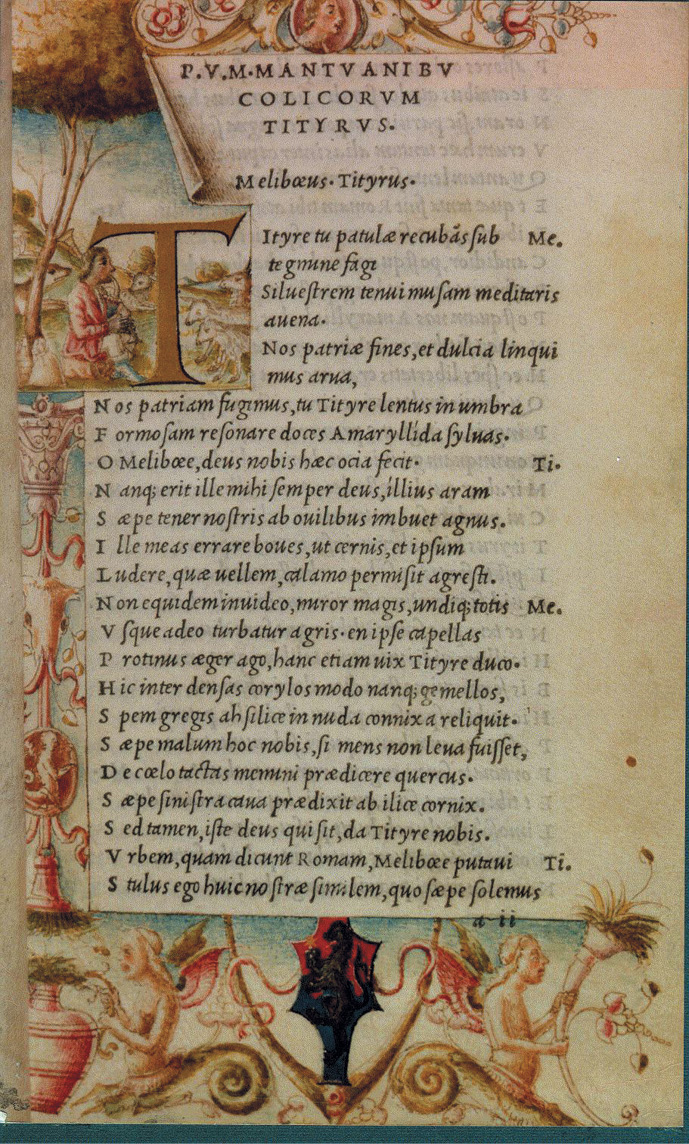 P.V.M.MANTVANIBV
COLICORVM
TITYRVS.
Melibœus.Tityrus.
TItyre tu patulæ recubãs sub Me.
tegmine fagi
Siluestrem tenui musam meditaris
auena.
Nos patriæ fines, et dulcia linqui
mus arua,
Nos patriam fugimus, tu Tityre lentus in umbra
Formosam resonare doces Amaryllida syluas.
O Melibœe, deus nobis hæc ocia fecit. Ti.
Nanq; erit ille mihi semper deus, illius aram
Sæpe tener nostris ab ouilibus imbuet agnus.
Ille meas errare boues, ut cernis, et ipsum
Ludere, quæ uellem, calamo permisit agresti.
Non equidem inuideo, miror magis, undiq; totis Me.
Vsque adeo turbatur agris. en ipse capellas
Protinus æger ago, hanc etiam uix Tityre duco.
Hic inter densas corylos modo nanq; gemellos,
Spem gregis ah silice in nuda connixa reliquit.
Sæpe malum hoc nobis, si mens non leua fuisset,
De cœlo tactas memini prædicere quercus.
Sæpe sinistra caua prædixit ab ilice cornix.
Sed tamen, iste deus qui sit, da Tityre nobis.
Vrbem, quam dicunt Romam, Melibœe putaui Ti.
Stulus ego huic nostræ similem, quo sæpe solemus
a ii